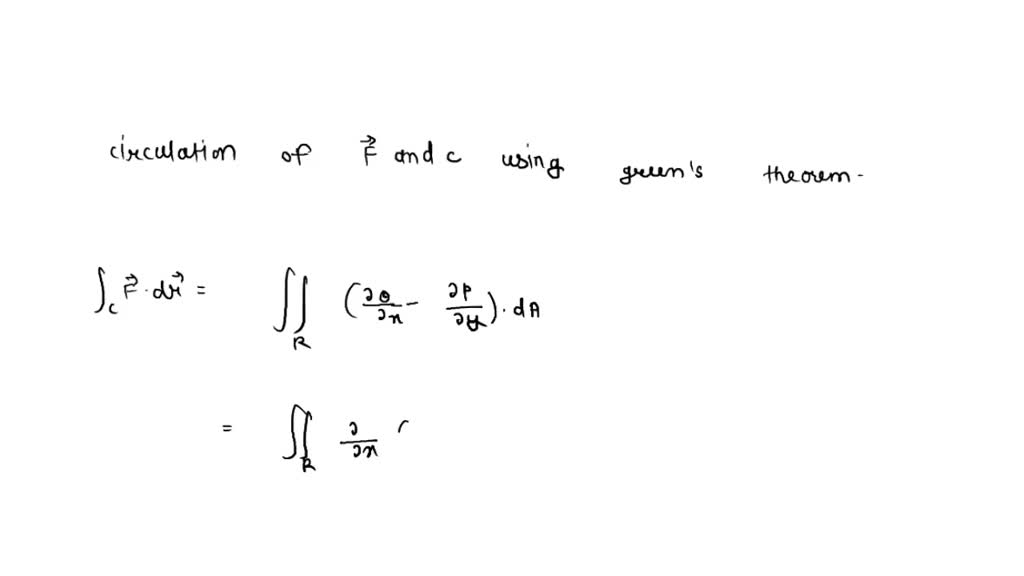 circulation of F⃗ and c using green's theorem.
∫_c F⃗ · dr⃗ = ∬_R (∂Q/∂x - ∂P/∂y) · dA
= ∬_R ∂/∂x (